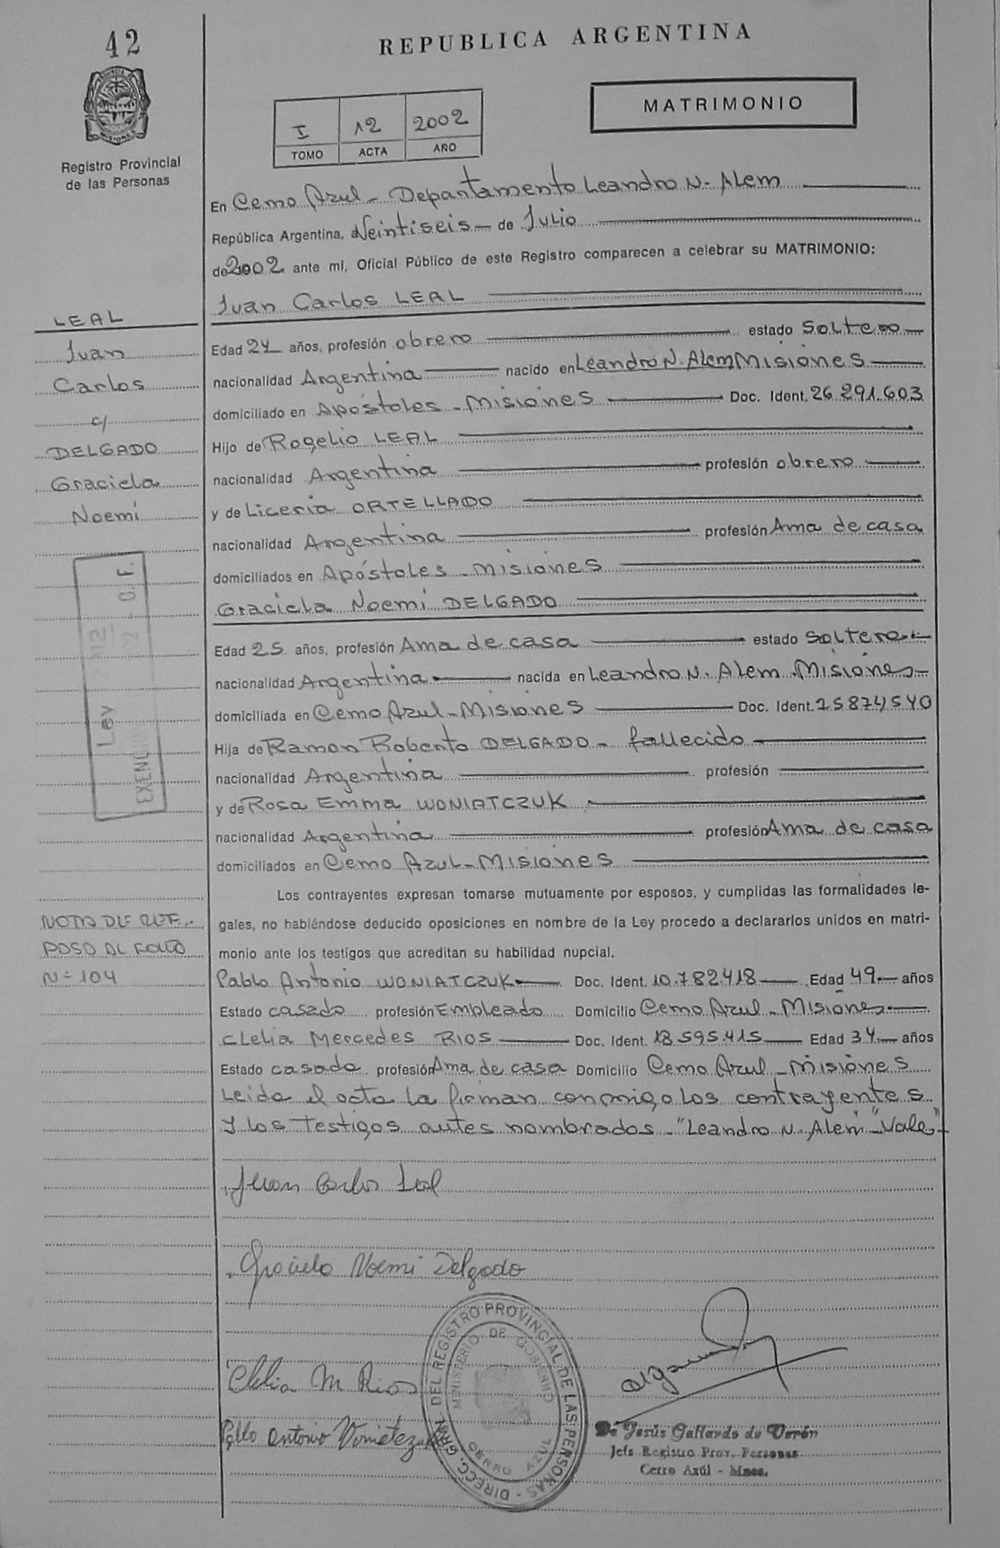 42
REPUBLICA ARGENTINA
MATRIMONIO
I 12 2002
TOMO ACTA AÑO
Registro Provincial
de las Personas
En Cerro Azul - Departamento Leandro N. Alem
República Argentina, a Veintiseis de Julio
de 2002 ante mí, Oficial Público de este Registro comparecen a celebrar su MATRIMONIO:
Juan Carlos LEAL
LEAL
Juan
Carlos
c/
DELGADO
Graciela
Noemí
Edad 24 años, profesión obrero estado Soltero
nacionalidad Argentina nacido en Leandro N. Alem Misiones
domiciliado en Apóstoles - Misiones Doc. Ident. 26.291.603
Hijo de Rogelio LEAL
nacionalidad Argentina profesión obrero
y de Liceria ORTELLADO
nacionalidad Argentina profesión Ama de casa
domiciliados en Apóstoles - Misiones
Graciela Noemí DELGADO
Edad 25 años, profesión Ama de casa estado Soltera
nacionalidad Argentina nacida en Leandro N. Alem - Misiones
domiciliada en Cerro Azul - Misiones Doc. Ident. 25.874.540
Hija de Ramon Roberto DELGADO - fallecido
nacionalidad Argentina profesión
y de Rosa Emma WONIATCZUK
nacionalidad Argentina profesión Ama de casa
domiciliados en Cerro Azul - Misiones
Ley
Los contrayentes expresan tomarse mutuamente por esposos, y cumplidas las formalidades le-
gales, no habiéndose deducido oposiciones en nombre de la Ley procedo a declararlos unidos en matri-
monio ante los testigos que acreditan su habilidad nupcial.
NOTA DE REF.
PASO AL FOLIO
Nº 104
Pablo Antonio WONIATCZUK Doc. Ident. 10.782.418 Edad 49 años
Estado casado profesión Empleado Domicilio Cerro Azul - Misiones
Clelia Mercedes RIOS Doc. Ident. 18.595.415 Edad 34 años
Estado casada profesión Ama de casa Domicilio Cerro Azul - Misiones
Leida el acta la firman conmigo los contrayentes
y los Testigos antes nombrados - "Leandro N. Alem" Vale
Juan Carlos Leal
Graciela Noemi Delgado
Clelia M Rios
Pablo Antonio Woniatczuk
DIRECC. GRAL. DEL REGISTRO PROVINCIAL DE LAS PERSONAS
MINISTERIO DE GOBIERNO
CERRO AZUL
De Jesús Gallardo de Verón
Jefe Registro Prov. Personas
Cerro Azúl - Mnes.